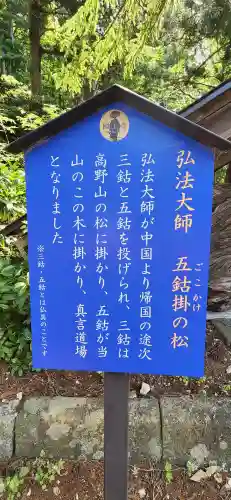 弘法大師　五鈷掛の松
ごこかけ
弘法大師が中国より帰国の途次
三鈷と五鈷を投げられ、三鈷は
高野山の松に掛かり、五鈷が当
山のこの木に掛かり、真言道場
となりました
※三鈷・五鈷とは仏具のことです